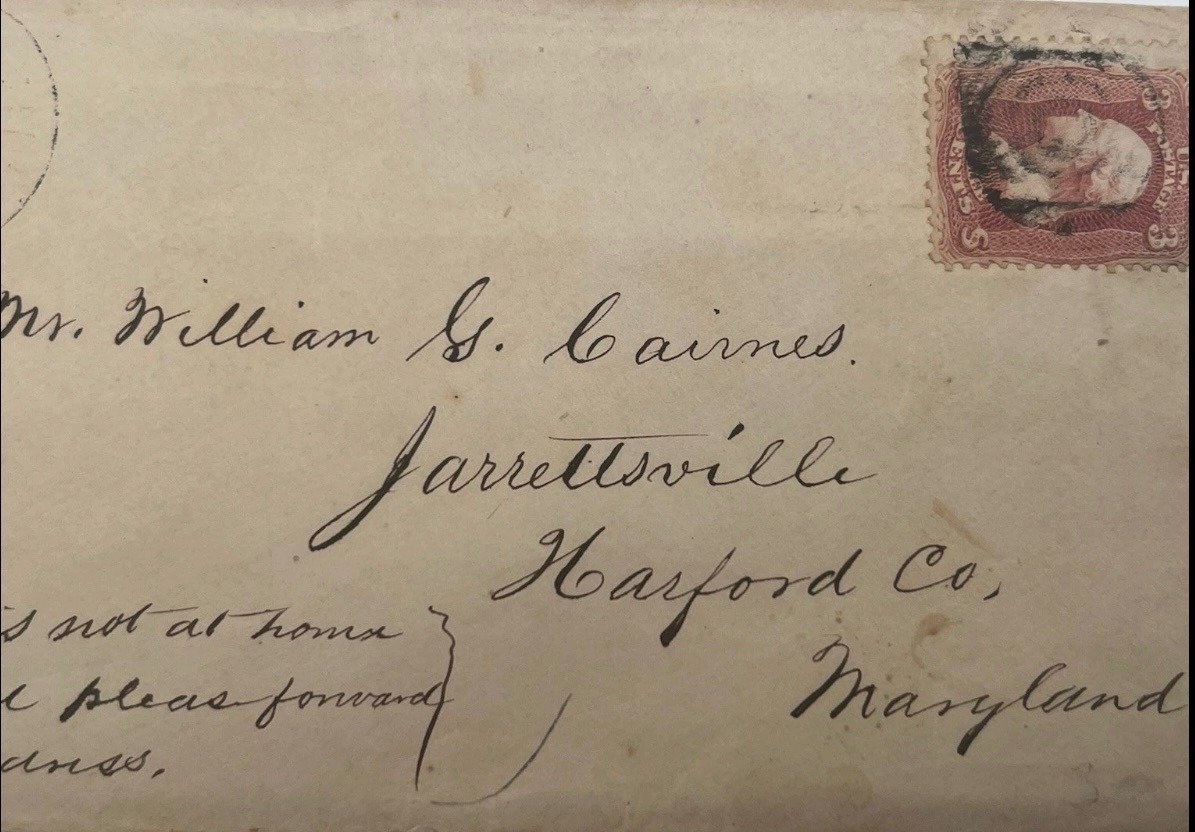 U.S. POSTAGE
3 3
CENTS
Mr. William G. Cairnes.
Jarrettsville
Harford Co,
Maryland
is not at home
pleas forward